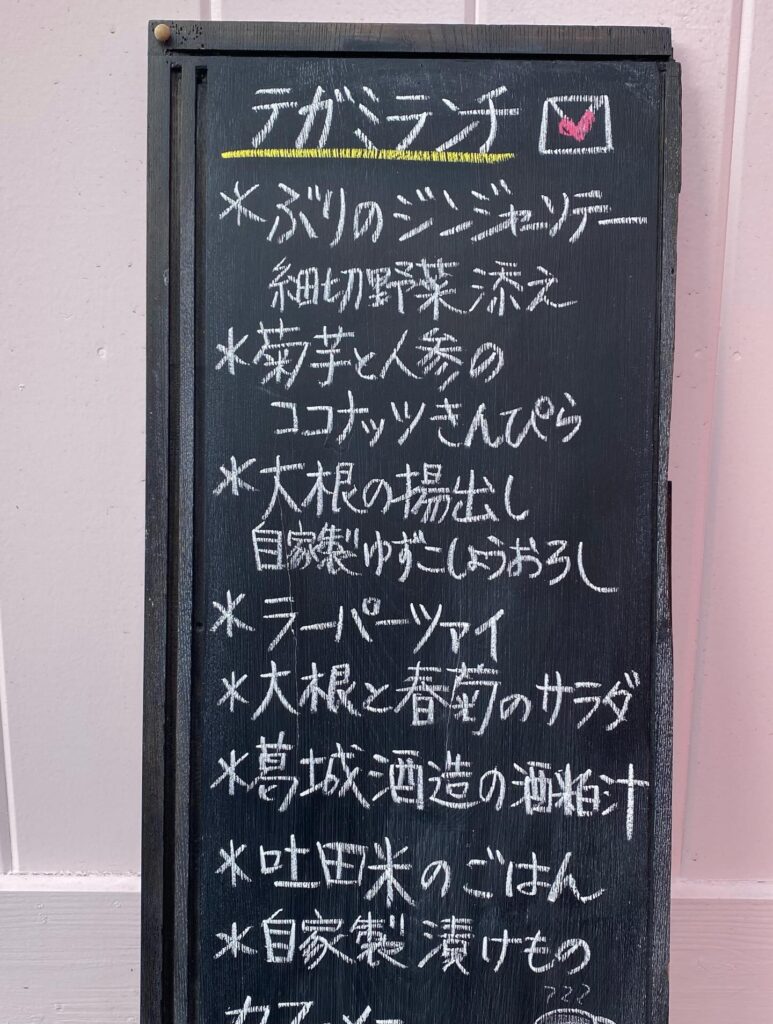 テガミランチ
*ぶりのジンジャーソテー
細切野菜添え
*菊芋と人参の
ココナッツきんぴら
*大根の揚出し
自家製ゆずこしょうおろし
*ラーパーツァイ
*大根と春菊のサラダ
*葛城酒造の酒粕汁
*吐田米のごはん
*自家製漬けもの